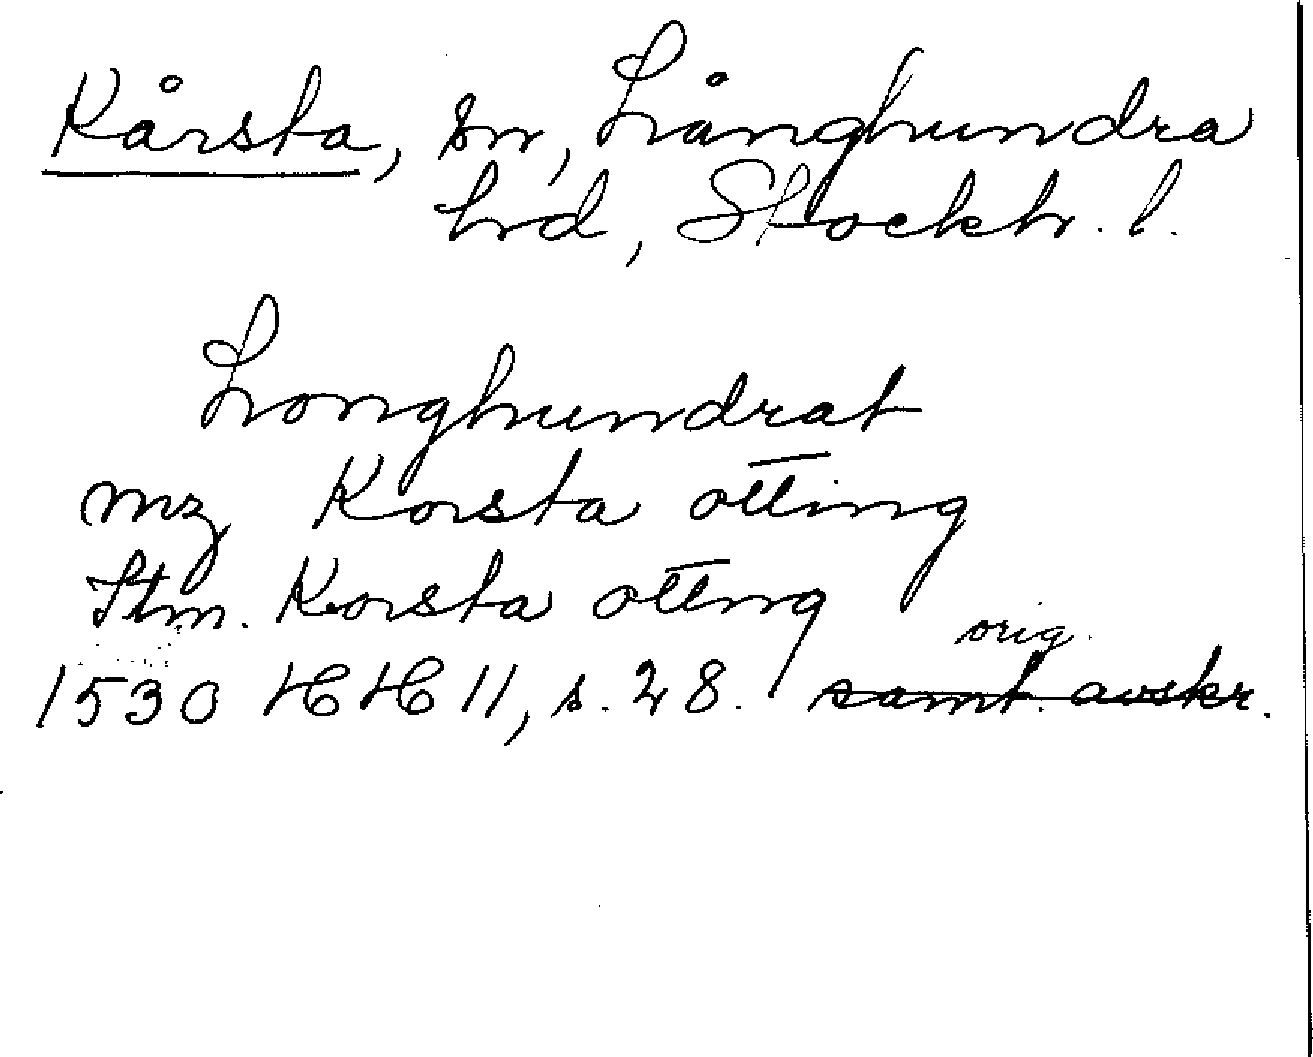 Kårsta, sn, Långhundra
hd, Stockh. l.
Longhundrat
mz Korsta otting
Itm. Korsta otting
orig.
1530 HH 11, s. 28. samt. avskr.